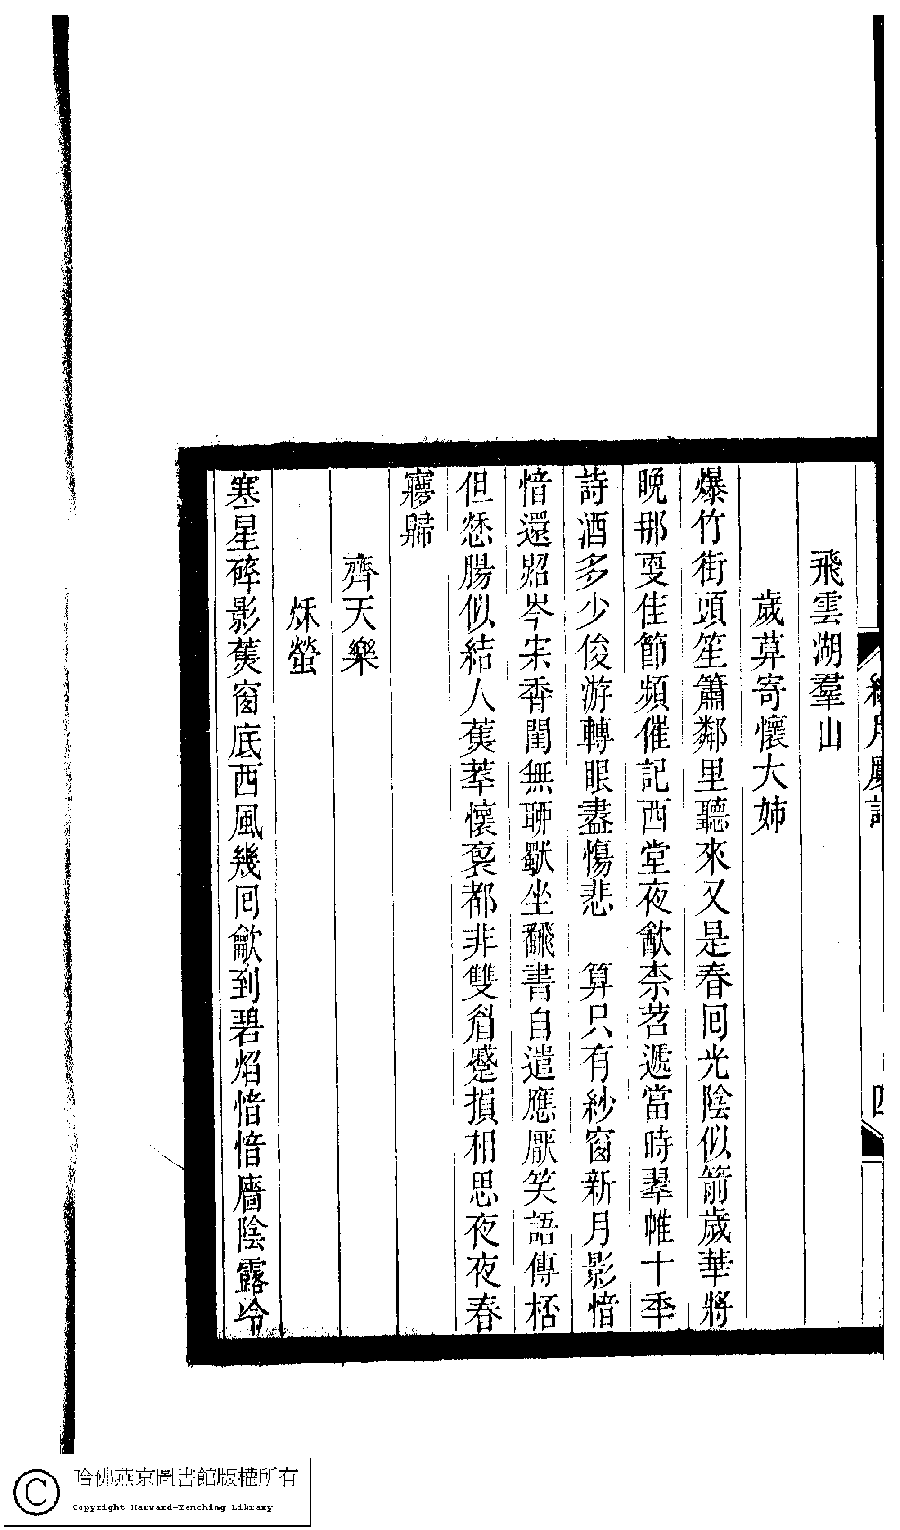 飛雲湖羣山
歲莫寄懷大姊
爆竹街頭笙簫鄰里聽來又是春回光陰似箭歲華將
晚那叓佳節頻催記西堂夜歈柰茗遞當時翠帷十季
詩酒多少俊游轉眼盡傷悲　算只有紗窗新月影愔
愔還照岑宋香閨無聊獸坐飜書自遣應厭笑語傳桮
但愁腸似結人蕉萃懷褱都非雙眉蹙損相思夜夜春
寢歸
齊天樂
秌螢
寒星碎影蕉窗底西風幾回龡到碧焰愔愔牆陰露冷
四
哈佛燕京圖書館版權所有
Copyright Harvard-Yenching Library